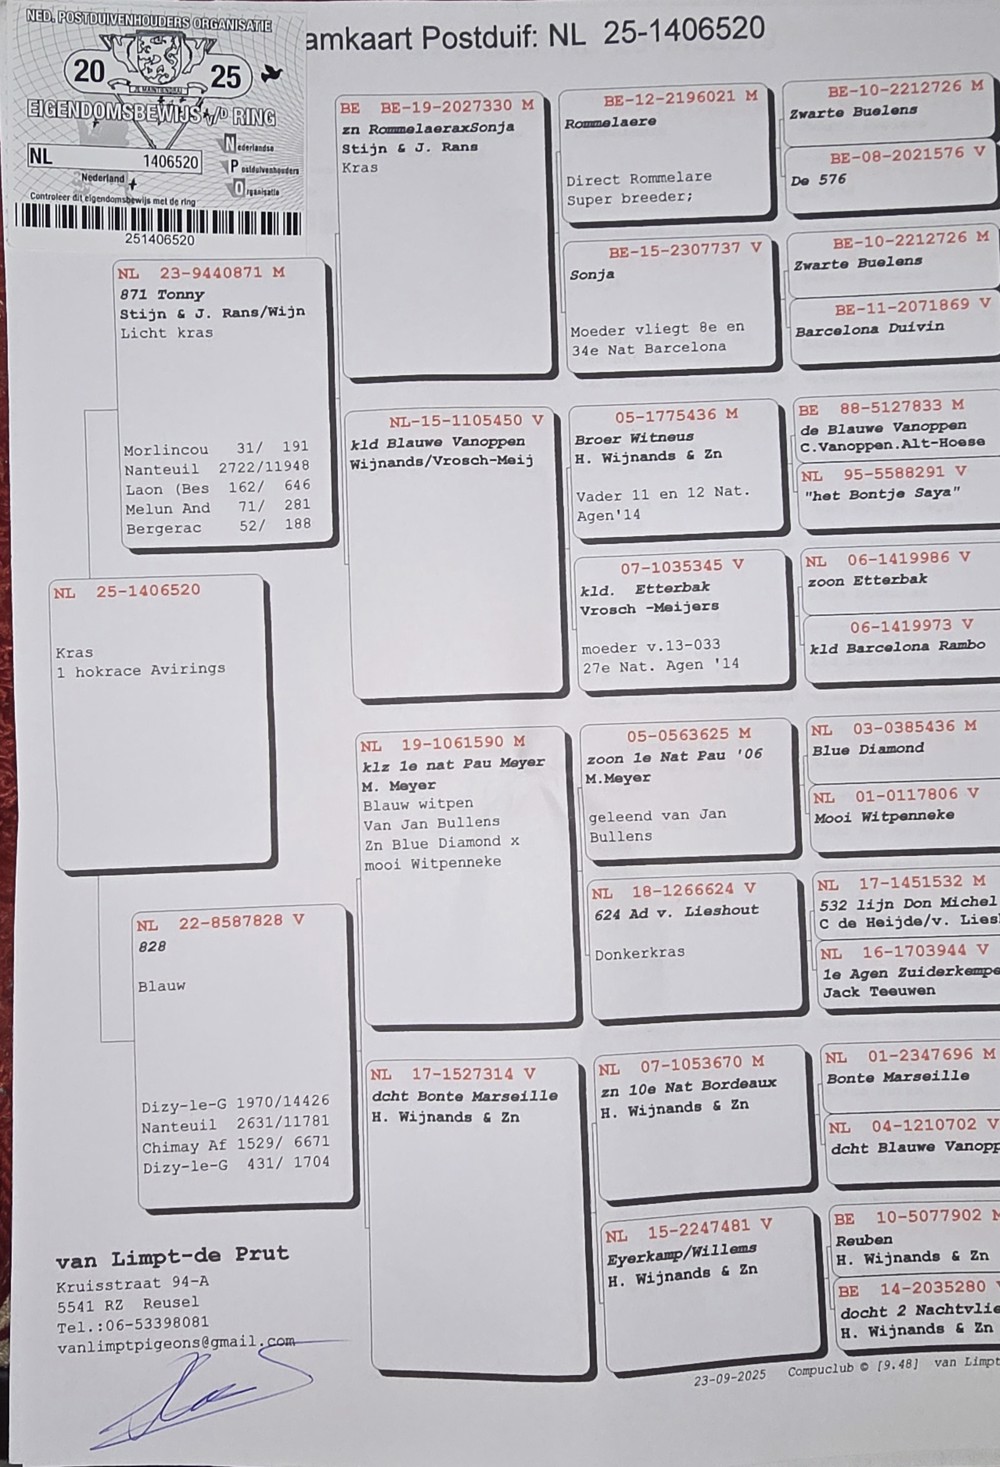 NED. POSTDUIVENHOUDERS ORGANISATIE
20 25
JE MAINTIENDRAI
EIGENDOMSBEWIJS V/D RING
NL 1406520
Nederland
Nederlandse
Postduivenhouders
Organisatie
Controleer dit eigendomsbewijs met de ring
251406520
amkaart Postduif: NL 25-1406520
NL 25-1406520
Kras
1 hokrace Avirings
NL 23-9440871 M
871 Tonny
Stijn & J. Rans/Wijn
Licht kras
Morlincou 31/ 191
Nanteuil 2722/11948
Laon (Bes 162/ 646
Melun And 71/ 281
Bergerac 52/ 188
NL 22-8587828 V
828
Blauw
Dizy-le-G 1970/14426
Nanteuil 2631/11781
Chimay Af 1529/ 6671
Dizy-le-G 431/ 1704
BE BE-19-2027330 M
zn RommelaeraxSonja
Stijn & J. Rans
Kras
NL-15-1105450 V
kld Blauwe Vanoppen
Wijnands/Vrosch-Meij
NL 19-1061590 M
klz 1e nat Pau Meyer
M. Meyer
Blauw witpen
Van Jan Bullens
Zn Blue Diamond x
mooi Witpenneke
NL 17-1527314 V
dcht Bonte Marseille
H. Wijnands & Zn
BE-12-2196021 M
Rommelaere
Direct Rommelare
Super breeder;
BE-15-2307737 V
Sonja
Moeder vliegt 8e en
34e Nat Barcelona
05-1775436 M
Broer Witneus
H. Wijnands & Zn
Vader 11 en 12 Nat.
Agen'14
07-1035345 V
kld. Etterbak
Vrosch -Meijers
moeder v.13-033
27e Nat. Agen '14
05-0563625 M
zoon 1e Nat Pau '06
M.Meyer
geleend van Jan
Bullens
NL 18-1266624 V
624 Ad v. Lieshout
Donkerkras
NL 07-1053670 M
zn 10e Nat Bordeaux
H. Wijnands & Zn
NL 15-2247481 V
Eyerkamp/Willems
H. Wijnands & Zn
BE-10-2212726 M
Zwarte Buelens
BE-08-2021576 V
De 576
BE-10-2212726 M
Zwarte Buelens
BE-11-2071869 V
Barcelona Duivin
BE 88-5127833 M
de Blauwe Vanoppen
C.Vanoppen.Alt-Hoese
NL 95-5588291 V
"het Bontje Saya"
NL 06-1419986 V
zoon Etterbak
06-1419973 V
kld Barcelona Rambo
NL 03-0385436 M
Blue Diamond
NL 01-0117806 V
Mooi Witpenneke
NL 17-1451532 M
532 lijn Don Michel
C de Heijde/v. Lies
NL 16-1703944 V
1e Agen Zuiderkempe
Jack Teeuwen
NL 01-2347696 M
Bonte Marseille
NL 04-1210702 V
dcht Blauwe Vanopp
BE 10-5077902 M
Reuben
H. Wijnands & Zn
BE 14-2035280 V
docht 2 Nachtvlie
H. Wijnands & Zn
van Limpt-de Prut
Kruisstraat 94-A
5541 RZ Reusel
Tel.:06-53398081
vanlimptpigeons@gmail.com
23-09-2025 Compuclub © [9.48] van Limpt